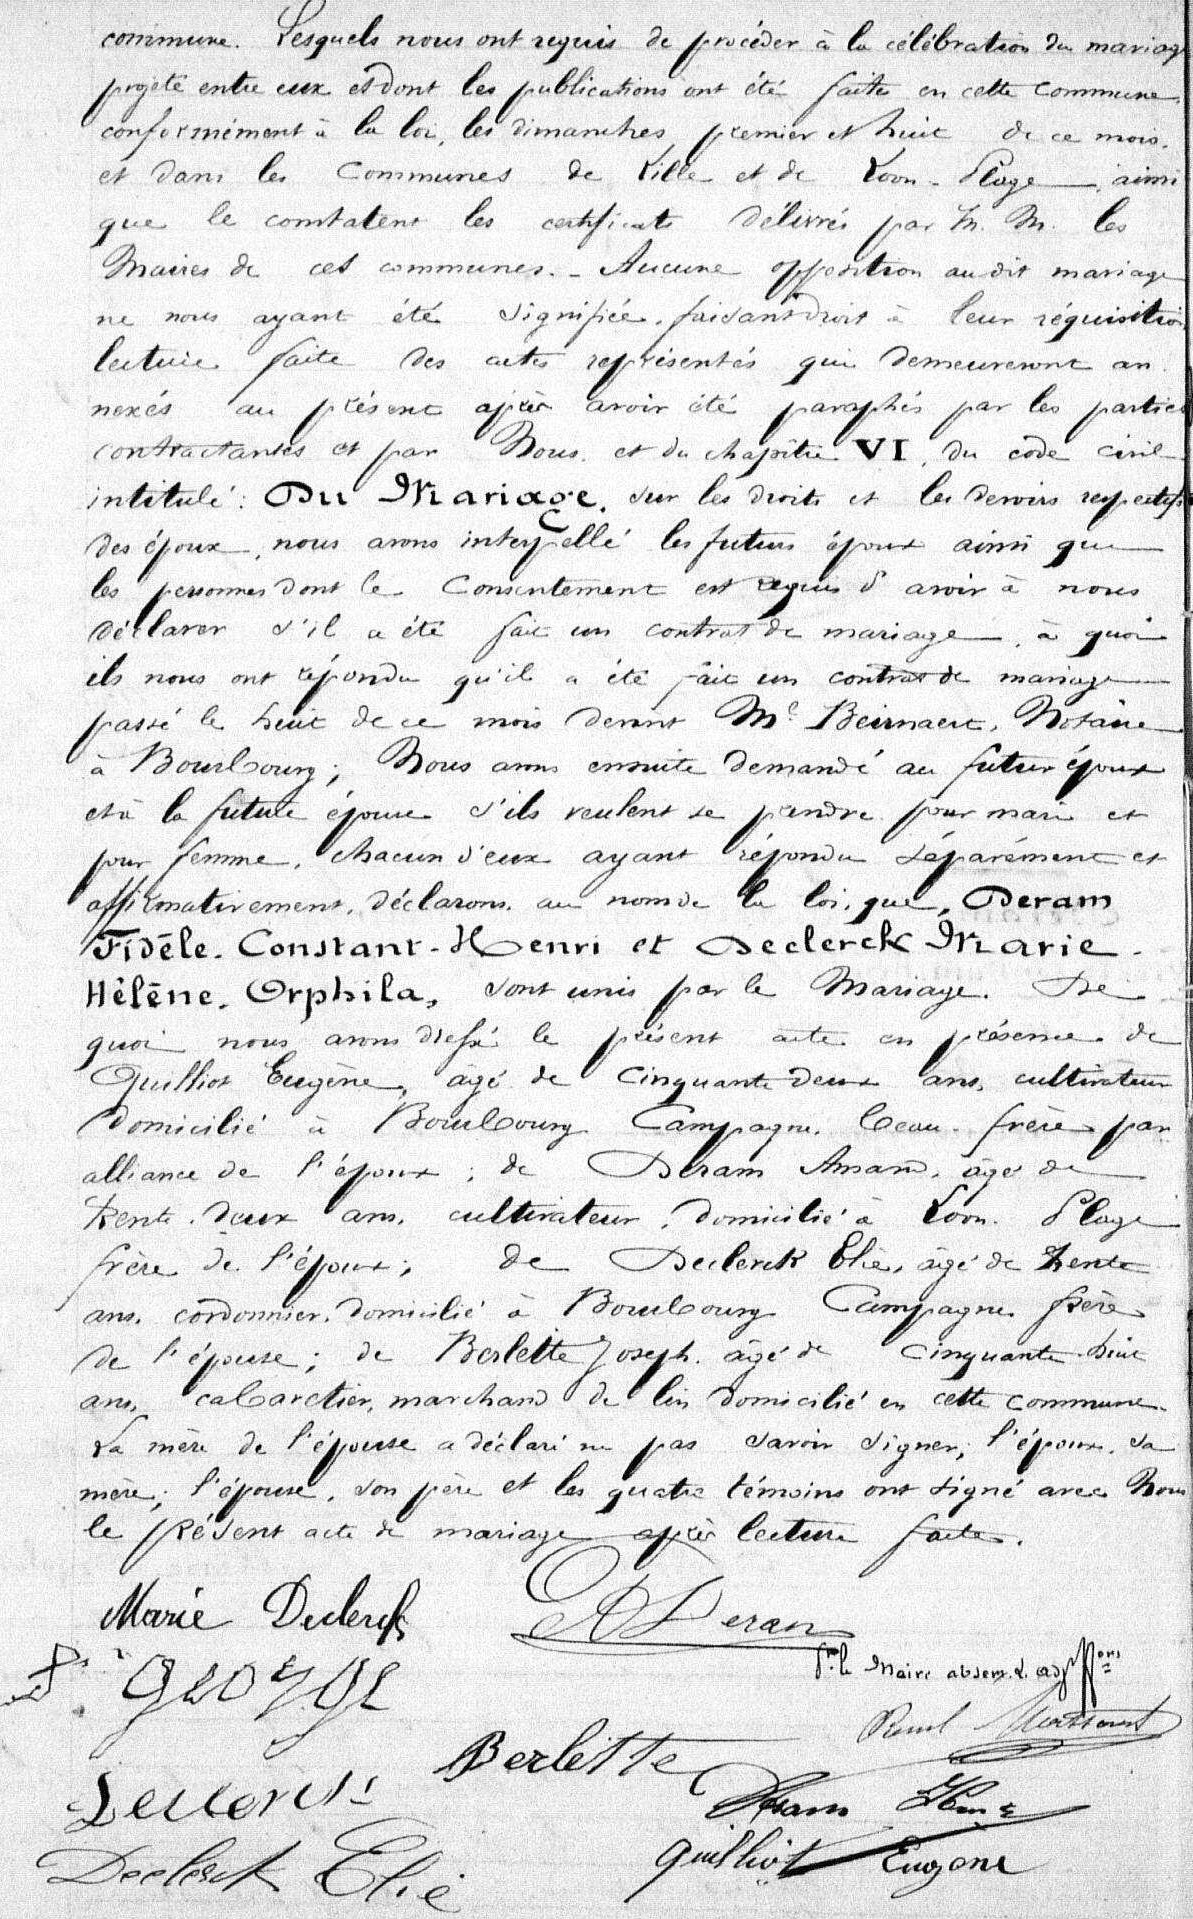 commune. Lesquels nous ont requis de procéder à la célébration du mariage
projeté entre eux et dont les publications ont été faites en cette commune
conformément à la loi, les dimanches premier et huit de ce mois.
et dans les Communes de Lille et de Loon-Plage, ainsi
que le constatent les certificats délivrés par M. M. les
Maires de ces communes. - Aucune opposition audit mariage
ne nous ayant été signifiée, faisant droit à leur réquisition
lecture faite des actes représentés qui demeureront an
nexés au présent après avoir été paraphés par les parties
contractantes et par Nous, et du chapitre VI, du code civil
intitulé: Du Mariage, sur les droits et les devoirs respectifs
des époux, nous avons interpellé les futurs époux ainsi que
les personnes dont le Consentement est requis d'avoir à nous
déclarer s'il a été fait un contrat de mariage, à quoi
ils nous ont répondu qu'il a été fait un contrat de mariage
passé le huit de ce mois devant Me Beirnaert, Notaire
à Bourbourg; Nous avons ensuite demandé au futur époux
et à la future épouse s'ils veulent se prendre pour mari et
pour femme, chacun d'eux ayant répondu séparément et
affirmativement, déclarons au nom de la loi, que, Deram
Fidèle-Constant-Henri et Declerck Marie-
Hélène, Orphila, sont unis par le Mariage. De
quoi nous avons dressé le présent acte en présence de
Quilliot Eugène, âgé de cinquante deux ans, cultivateur
domicilié à Bourbourg Campagne, beau-frère par
alliance de l'époux; de Deram Amand, âgé de
trente-deux ans, cultivateur, domicilié à Loon-Plage
frère de l'époux; de Declerck Elie, âgé de trente
ans, cordonnier, domicilié à Bourbourg Campagne frère
de l'épouse; de Berlette Joseph, âgé de cinquante huit
ans, cabaretier, marchand de lin domicilié en cette commune.
La mère de l'épouse a déclaré ne pas savoir signer; l'époux, sa
mère; l'épouse, son père et les quatre témoins ont signé avec Nous
le présent acte de mariage après lecture faite.
Marie Declerck
A Deram
Pr le Maire absent, L. adj
George
Berlette
Declerck
Deram
Quilliot Eugene
Declerck Elie